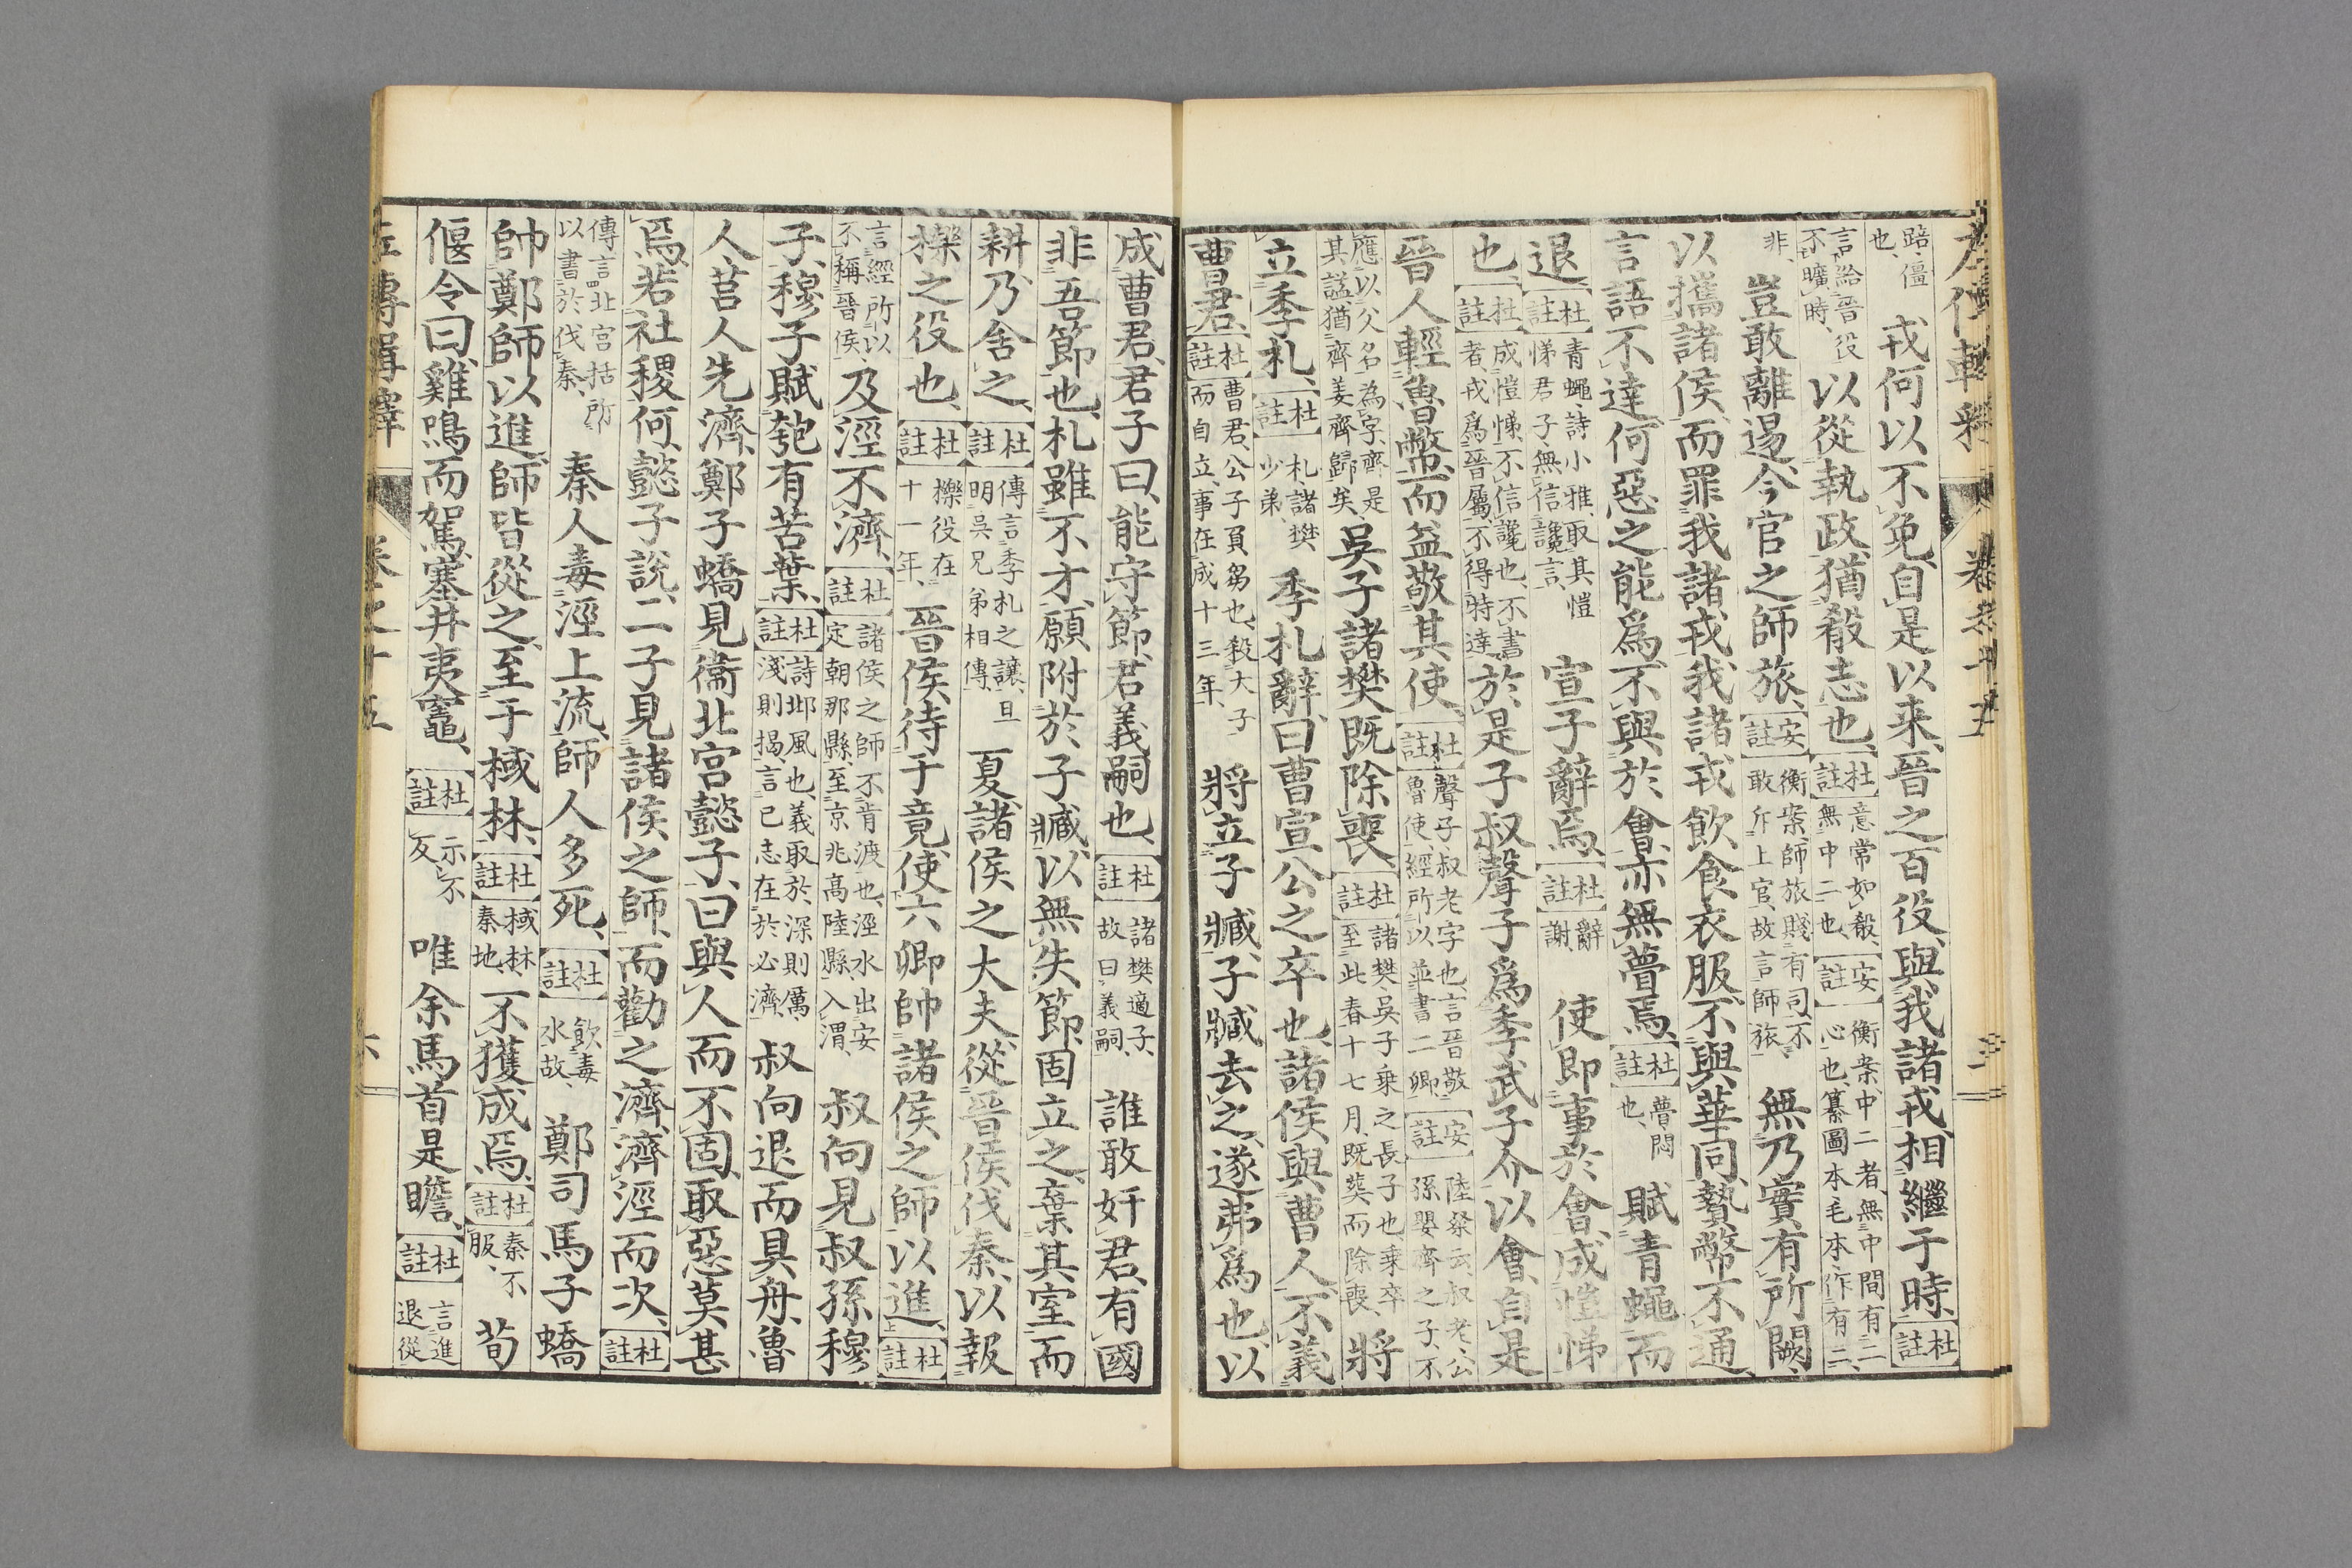 踣僵也 戎何以不免自是以來晉之百役與我諸戎相繼于時杜註
言給晉役不曠時 以從執政猶殽志也杜註意常如殽無中二也安註衡案中二者無中間有二心也纂圖本毛本作有二
非 豈敢離逷今官之師旅安註衡案師旅賤有司不敢斥上官故言師旅 無乃實有所闕
以攜諸侯而罪我諸戎我諸戎飲食衣服不與華同贄幣不通
言語不達何惡之能爲不與於會亦無瞢焉杜註瞢悶也 賦青蠅而
退杜註青蠅詩小雅取其愷悌君子無信讒言 宣子辭焉杜註辭謝 使即事於會成愷悌
也杜註成愷悌不信讒也不書者戎爲晉屬不得特達 於是子叔聲子爲季武子介以會自是
晉人輕魯幣而益敬其使杜註聲子叔老字也言晉敬魯使經所以並書二卿安註陸粲云叔老公孫嬰齊之子不
應以父名為字齊是其諡猶齊姜齊歸矣 吳子諸樊既除喪杜註諸樊吳子乘之長子也乘卒至此春十七月既葬而除喪 將
立季札杜註札諸樊少弟 季札辭曰曹宣公之卒也諸侯與曹人不義
曹君杜註曹君公子負芻也殺大子而自立事在成十三年 將立子臧子臧去之遂弗爲也以
成曹君君子曰能守節君義嗣也杜註諸樊適子故曰義嗣 誰敢奸君有國
非吾節也札雖不才願附於子臧以無失節固立之棄其室而
耕乃舍之杜註傳言季札之讓且明吳兄弟相傳 夏諸侯之大夫從晉侯伐秦以報
櫟之役也杜註櫟役在十一年 晉侯待于竟使六卿帥諸侯之師以進杜註
言經所以不稱晉侯 及涇不濟杜註諸侯之師不肯渡也涇水出安定朝那縣至京兆高陸縣入渭 叔向見叔孫穆
子穆子賦匏有苦葉杜註詩邶風也義取於深則厲淺則揭言己志在於必濟 叔向退而具舟魯
人莒人先濟鄭子蟜見衞北宮懿子曰與人而不固取惡莫甚
焉若社稷何懿子說二子見諸侯之師而勸之濟濟涇而次杜註
傳言北宮括所以書於伐秦 秦人毒涇上流師人多死杜註飲毒水故 鄭司馬子蟜
帥鄭師以進師皆從之至于棫林杜註棫林秦地 不獲成焉杜註秦不服 荀
偃令曰雞鳴而駕塞井夷竈杜註示不反 唯余馬首是瞻杜註言進退從